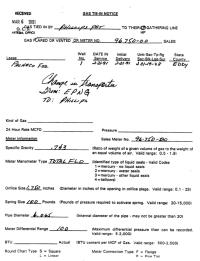 RECEIVED
GAS TIE-IN NOTICE
MAR 6 1991
O. C. D.
ARTESIA, OFFICE
GAS TIED IN BY Phillips Pet TO THEIR GATHERING LINE
GAS FLARED OR VENTED OR METER NO. 96750-00 SALES
Lease
Well No.
DATE IN Service
Initial Delivery
Unit-Sec-Tn-Rg
State
County
Eddy
Change in Transporter
From: EPNG
To: Phillips
Kind of Gas
24 Hour Rate MCFD
Pressure
Meter Information
Sales Meter No. 96-750-00
Specific Gravity .763 (Ratio of weight of a given volume of gas to the weight of an equal volume of air. Valid range: 0.5 - 1.8)
Meter Manometer Type TOTAL FLO (Identified type of liquid seals - Valid Codes
1 - mercury - no liquid seals
2 - mercury - water seals
3 - mercury - other liquid seals
4 - bellows)
Orifice Size 1.750 inches (Diameter in inches of the opening in orifice plate. Valid range: 0.1 - 25)
Spring Size 100 Pounds (Pounds of pressure required to activate spring. Valid range: 20-15,000)
Pipe Diameter 6.065 (Internal diameter of the pipe - may not be greater than 30)
Meter Differential Range 100 (Maximum differential pressure than can be recorded. Valid range: 5-2,000)
BTU Actual (BTU content per MCF of Gas. Valid range: 500-2,500)
Round Chart Type S = Square
L = Linear
Meter Connection Type F = Flange
P = Pipe Tap